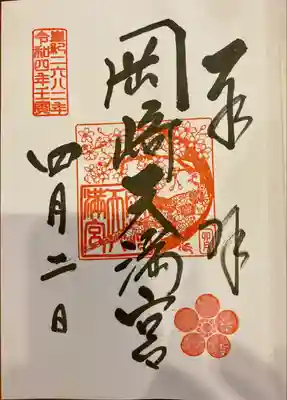 奉拝
岡崎天満宮
皇紀二六八二年
令和四年壬寅
四月二日
天満宮